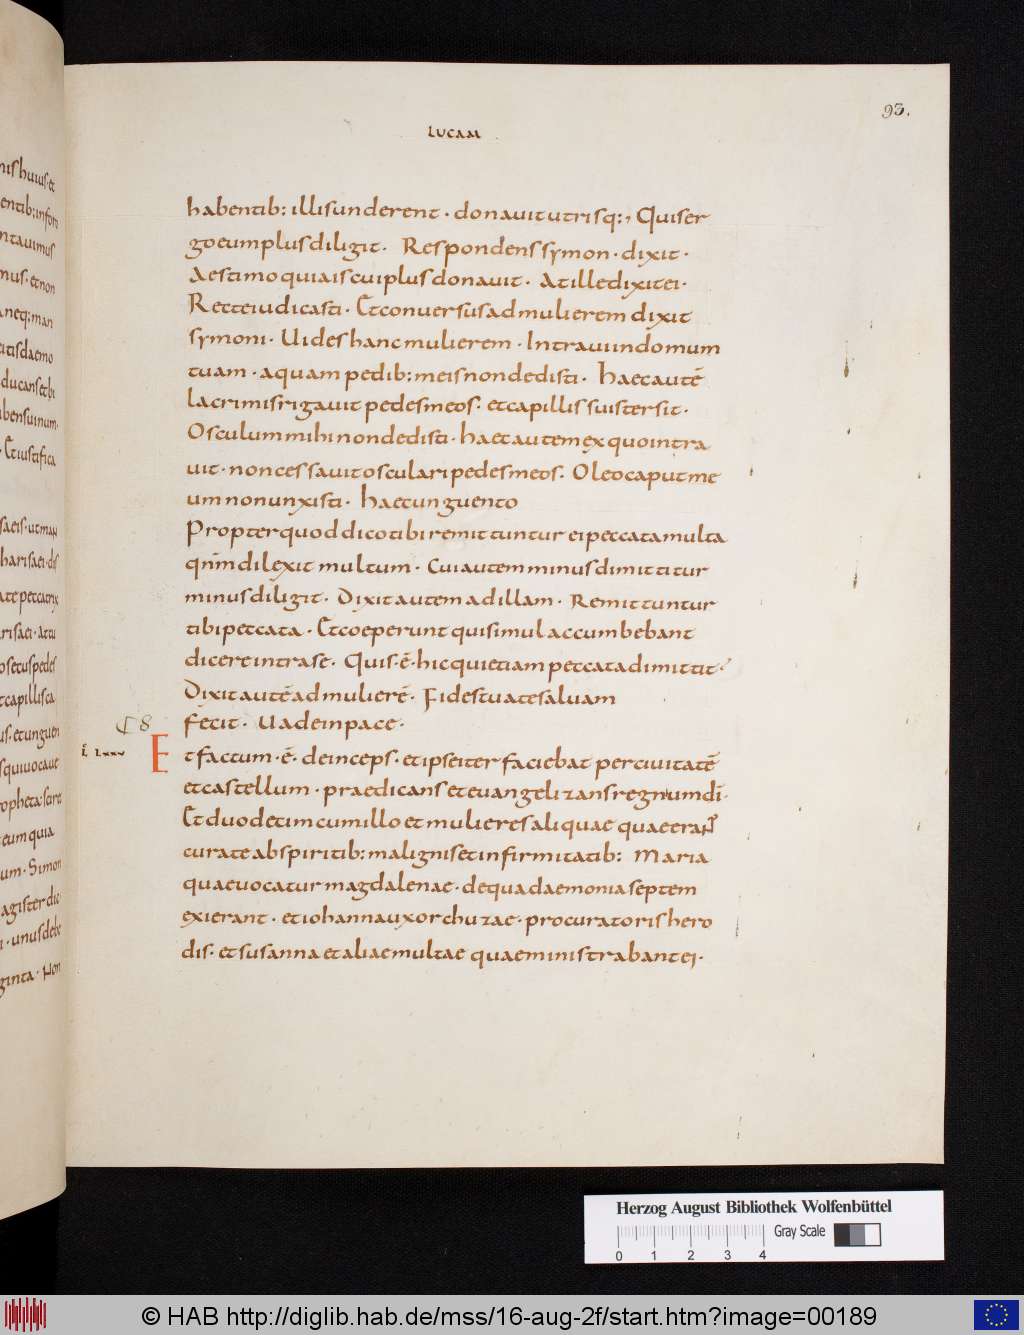 nis huius · et
entib: in foro
ntauimus
mus · et non
neq: man
itis daemo
ducans et bi
bens uinum ·
Et iustifica
saeis · ut man
harisaei · dis
peccatrix
risaei · attu
secus pedes
capillis ca
us · et unguen
s qui uocaue
opheta : sciret
eum quia
um · Simon
agister dic
unus debe
ginta · Non
93.
LUCAM
habentib: illis unde redderent · donauit utrisq: , Quis er
go eum plus diligit · Respondens symon · dixit ·
Aestimo quia is cui plus donauit · At ille dixit ei ·
Recte iudicasti · Et conuersus ad mulierem dixit
symoni · Uides hanc mulierem · Intraui in domum
tuam · aquam pedib: meis non dedisti · haec autē
lacrimis rigauit pedes meos · et capillis suis tersit ·
Osculum mihi non dedisti · haec autem ex quo intra
uit · non cessauit osculari pedes meos · Oleo caput me
um non unxisti · haec unguento
Propter quod dico tibi remittuntur ei peccata multa
qnm̄ dilexit multum · Cui autem minus dimittitur
minus diligit · Dixit autem ad illam · Remittuntur
tibi peccata · Et coeperunt qui simul accumbebant
dicere intra se · Quis · ē · hic qui etiam peccata dimittit ·
Dixit autē ad mulierē · Fides tua te saluam
fecit · Uade in pace ·
C 8
LXXV
Et factum · ē · deinceps · et ipse iter faciebat per ciuitatē
et castellum · praedicans et euangelizans regnum dī ·
Et duodecim cum illo et mulieres aliquae quae erant
curatae ab spiritib: malignis et infirmitatib: Maria
quae uocatur magdalenae · de qua daemonia septem
exierant · et iohanna uxor chuzae · procuratoris hero
dis · et susanna et aliae multae quae ministrabant ei ·
Herzog August Bibliothek Wolfenbüttel
Gray Scale
0 1 2 3 4
© HAB http://diglib.hab.de/mss/16-aug-2f/start.htm?image=00189